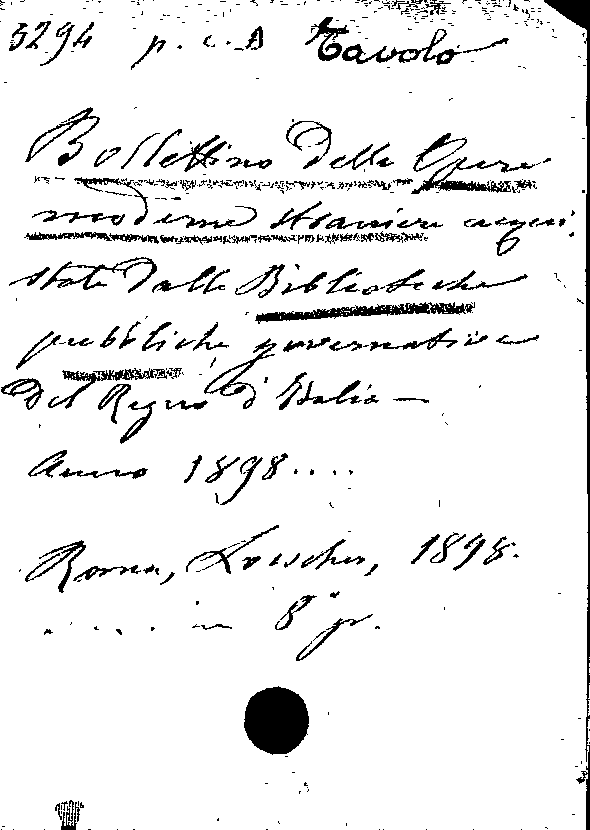 5294 p. c. A Tavolo
Bollettino delle Opere
moderne straniere acqui-
state dalle Biblioteche
pubbliche governative
del Regno d'Italia —
Anno 1898....
Roma, Loescher, 1898.
..... in 8° gr.